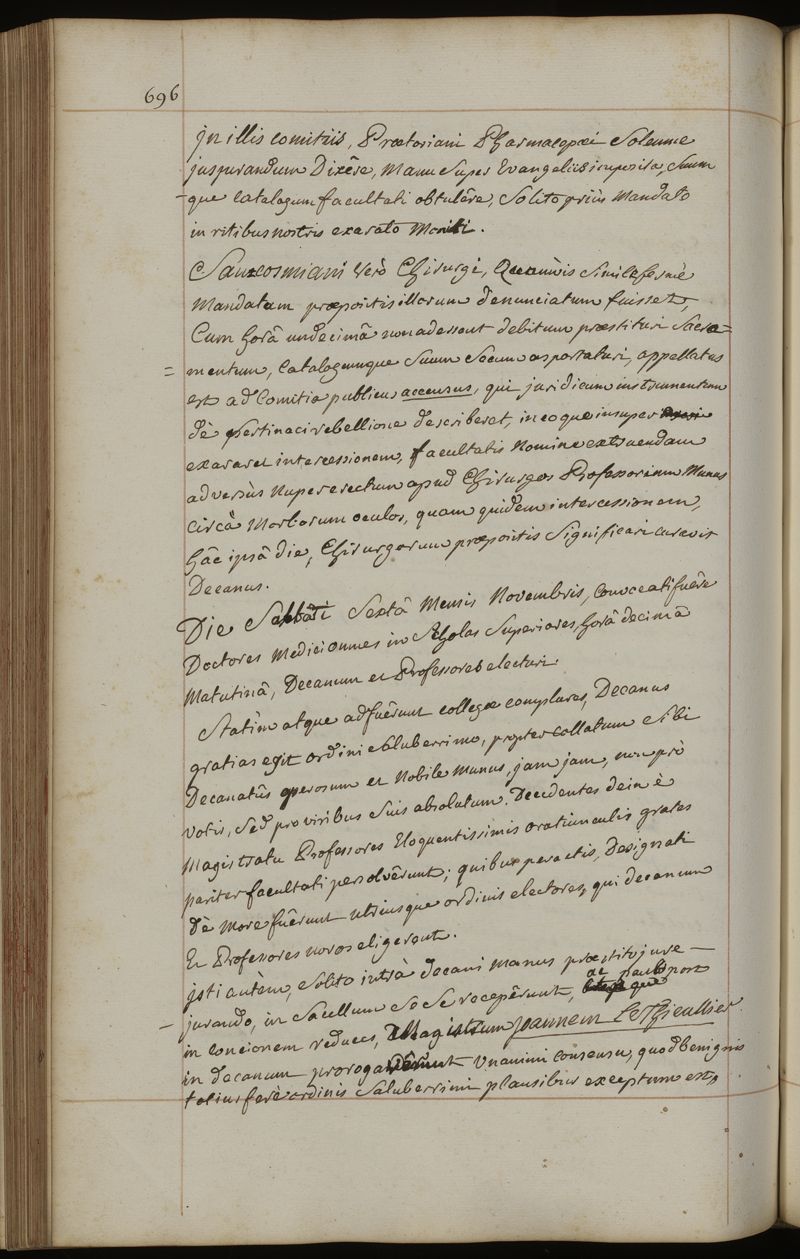 696
in illis comitiis, Prætoriani Pharmacopæi Solemne
jusjurandum Dixêre, manu super Evangeliis imposita, Suum
-que catalogum facultati obtulêre, Solito priùs Mandato
in ritibus nostris exarato Moniti.
Sancosmiani verò Chirurgi, Quamvis simile fermè
Mandatum præpositis illorum denunciatum fuisset,
Cum horâ undecimâ non adessent debitum præstituri Sacra=
=mentum, Catalogumque Suum Secum asportaturi, appellatus
est ad Comitia publicus accensus, qui juridicum instrumentum
dè pertinaci rebellione describeret, in eoque insuper
exararet intercessionem, facultatis Nomine extruendam
adversùs Nuper erectum apud Chirurgos Professorum Munus
circà Morborum oculos, quam quidem intercessionem,
hâc ipsâ die, Chirurgorum præpositis Significari curavit
Decanus.
Die Sabbati Sextâ Mensis Novembris, Convocati fuêre
Doctores Medici omnes in Scholas Superiores, horâ decimâ
Matutinâ, Decanum et Professores electuri
Statim atque adfuêrunt collegæ complures, Decanus
gratias egit ordini Saluberrimo, propter collatum Sibi
Decanatûs operosum et Nobile Munus, jam jam, non prò
votis, Sed pro viribus Suis absolutum. Decedentes dein è
Magistratu Professores Eloquentissimis oratiunculis grates
pariter facultati persolvêrunt; quibus peractis, Designati
dè More fuêrunt utriusque ordinis electores, qui decanum
Et Professores novos eligerent.
isti autèm, Solito intrà decani manus præstito jure-
-jurando, in Sacellum Se Se recepêrunt, ac paulò post
in Concionem reduces, Magistrum Joannem Le Thieullier
in decanum prorogavêrunt Unanimi Consensu, quod benignis
totius ferè ordinis Saluberrimi plausibus exceptum est,